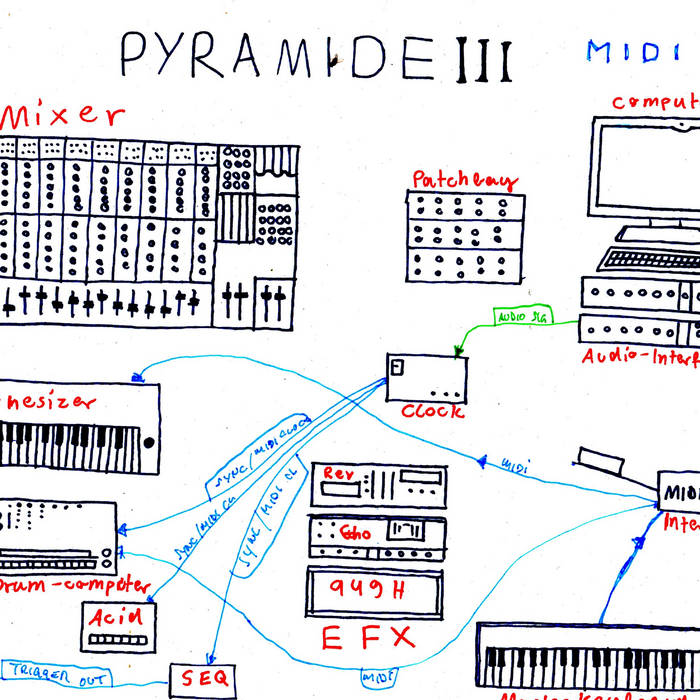 PYRAMIDE III
MIDI
Mixer
comput
Patchbay
AUDIO SIG
Audio-Interf
nesizer
Clock
SYNC/MIDI CLOCK
MIDI
SYNC/MIDI CL
SYNC/MIDI CL
Rev
Echo
949H
EFX
MIDI
Inter
Drum-computer
Acid
TRIGGER OUT
SEQ
MIDI